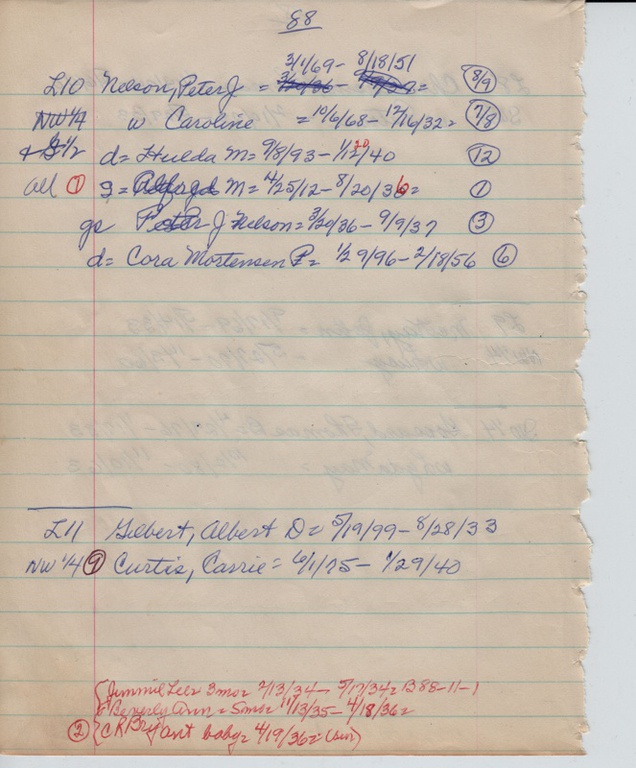 88
3/1/69 - 8/18/51
L10 Nelson, Peter J = 3/20/36 - 9/9/37 = 8/9
NW 1/4 w Caroline = 10/6/68 - 12/16/32 = 7/8
+ S 1/2 d = Hulda M = 9/8/93 - 1/12/40 20 12
all 1 s = M = 4/25/12 - 8/20/36 = 1
gs Peter J Nelson = 3/20/36 - 9/9/37 3
d = Cora Mortensen P = 1/29/96 - 2/18/56 6
L11 Gilbert, Albert D = 5/19/99 - 8/28/33
NW 1/4 9 Curtis, Carrie = 6/1/75 - 1/29/40
Jimmie Lee = 3mo = 2/13/34 - 5/17/34 = B88-11-1
Beverly Ann = 5mo = 11/13/35 - 4/18/36 =
2 CK Bryant baby = 4/19/36 =